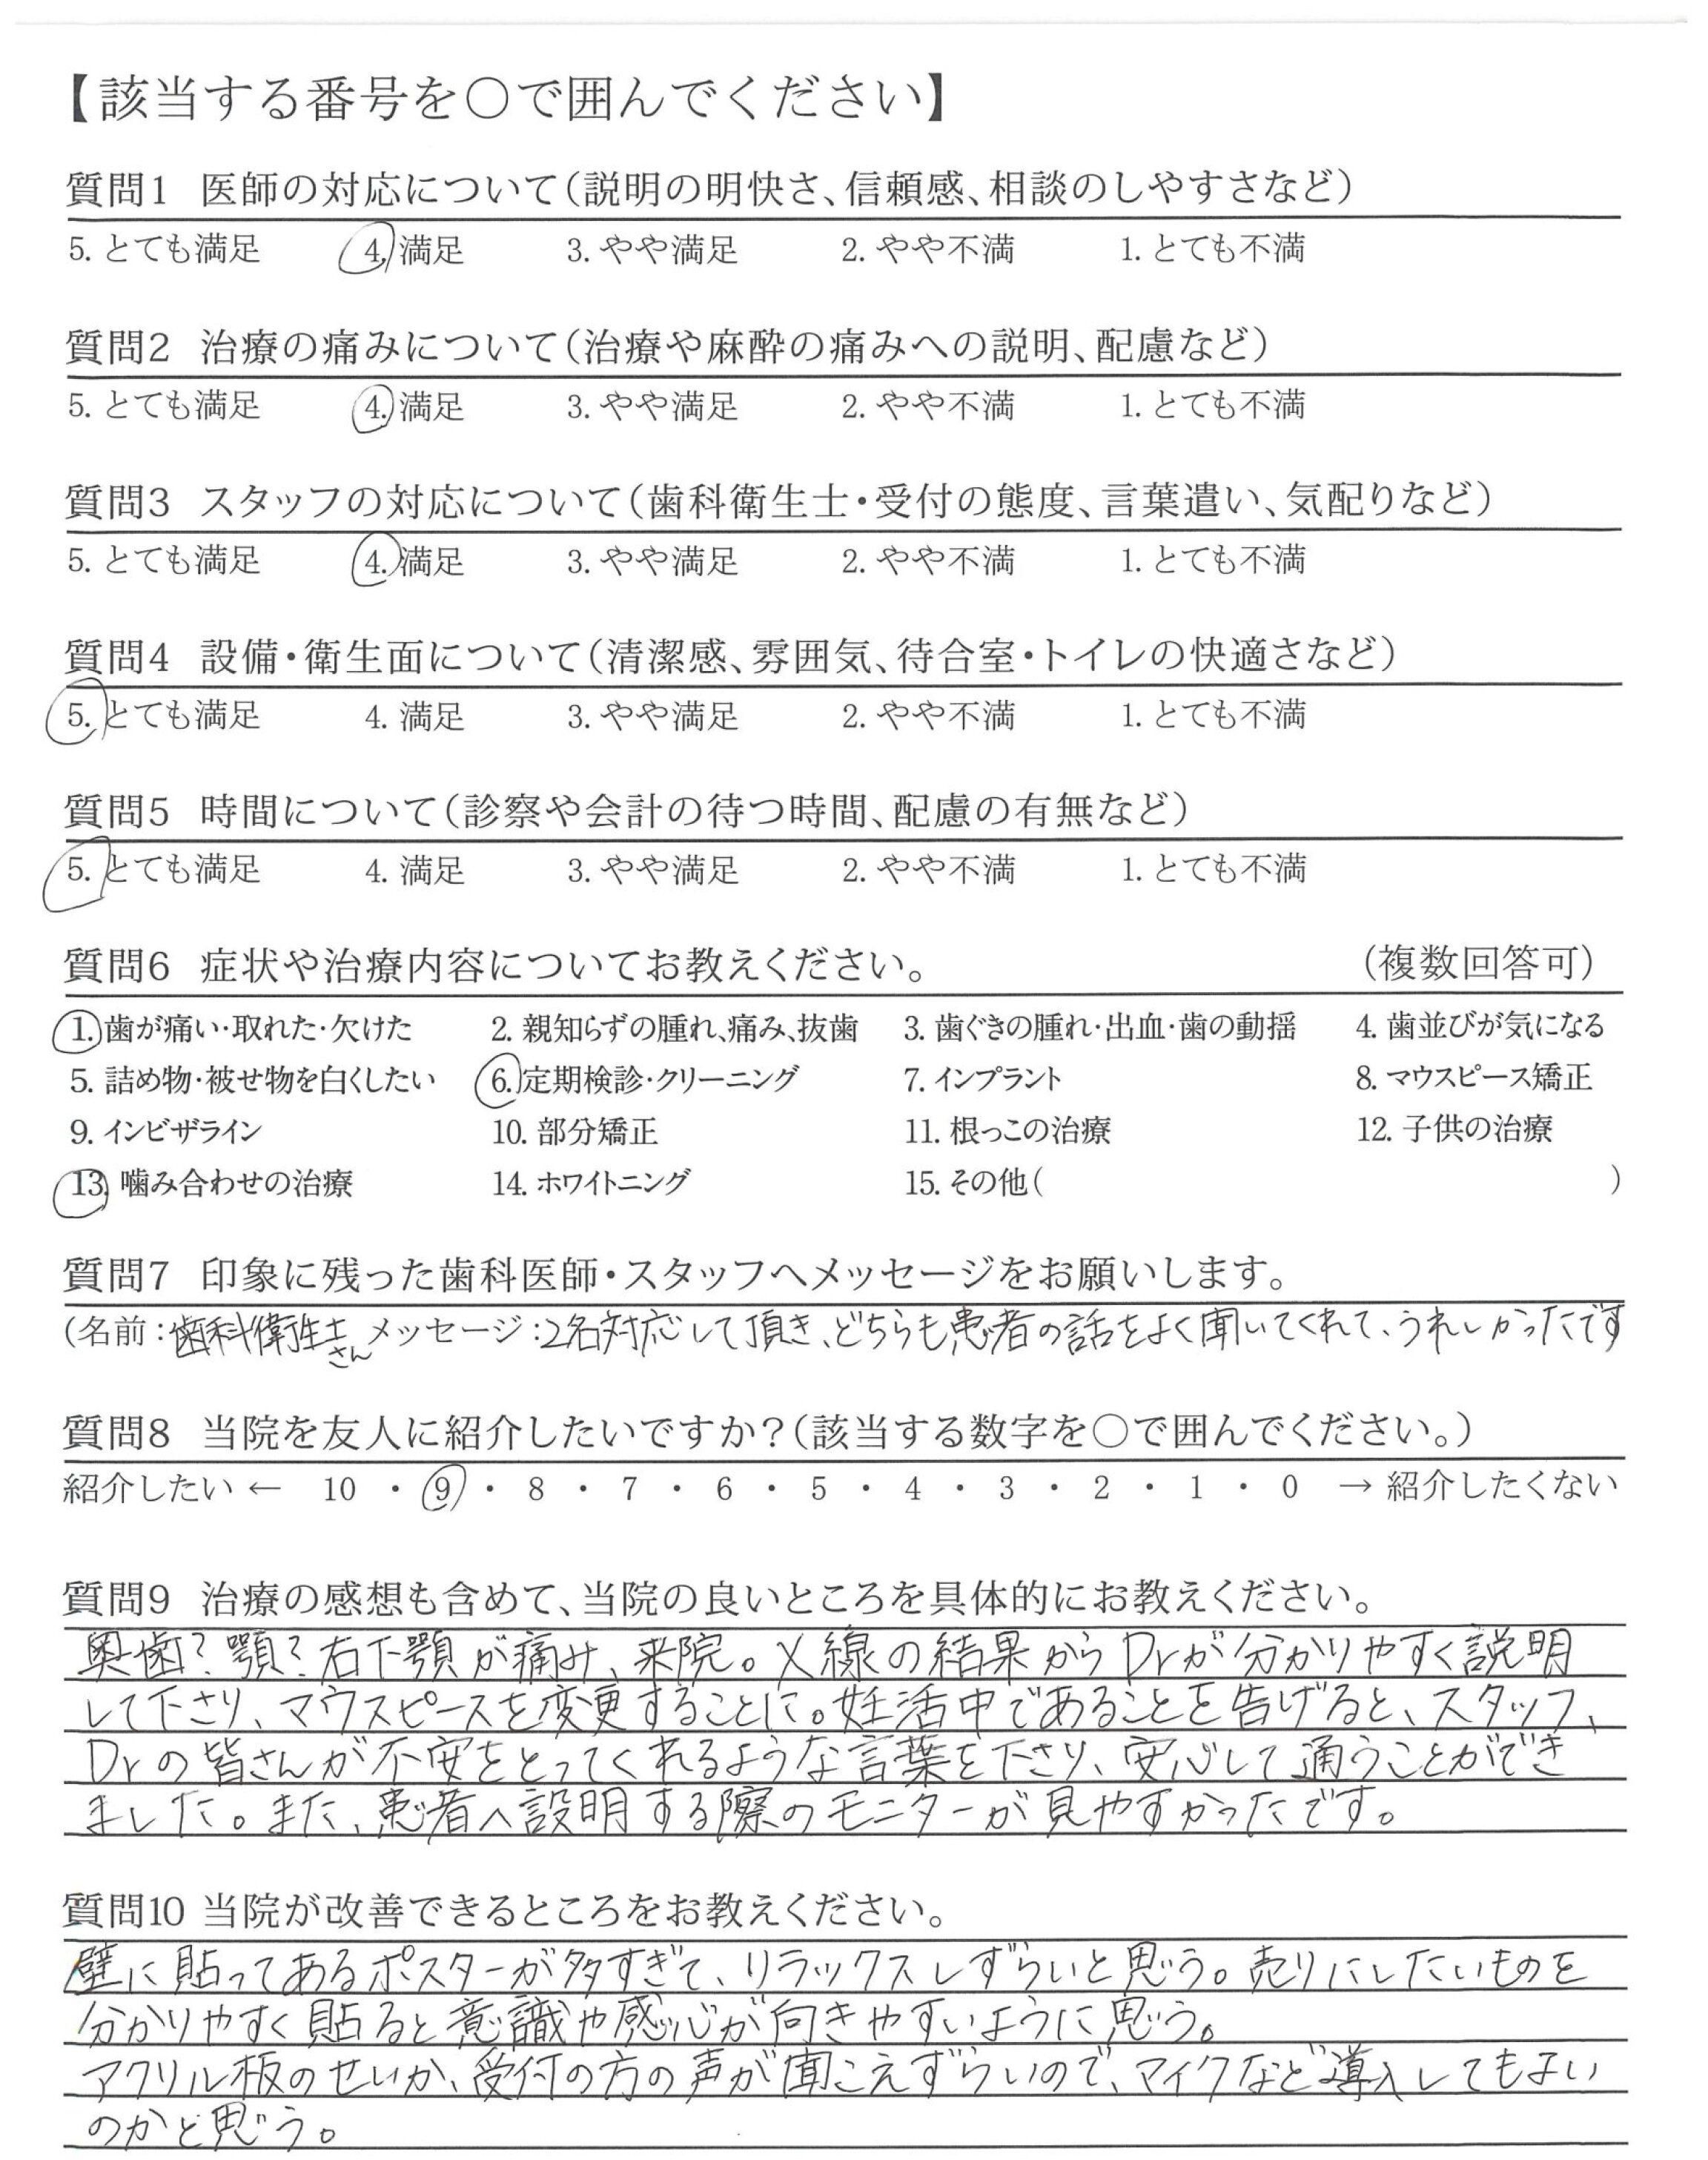 【該当する番号を○で囲んでください】
質問1 医師の対応について(説明の明快さ、信頼感、相談のしやすさなど)
5. とても満足 4. 満足 3. やや満足 2. やや不満 1. とても不満
質問2 治療の痛みについて(治療や麻酔の痛みへの説明、配慮など)
5. とても満足 4. 満足 3. やや満足 2. やや不満 1. とても不満
質問3 スタッフの対応について(歯科衛生士・受付の態度、言葉遣い、気配りなど)
5. とても満足 4. 満足 3. やや満足 2. やや不満 1. とても不満
質問4 設備・衛生面について(清潔感、雰囲気、待合室・トイレの快適さなど)
5. とても満足 4. 満足 3. やや満足 2. やや不満 1. とても不満
質問5 時間について(診察や会計の待つ時間、配慮の有無など)
5. とても満足 4. 満足 3. やや満足 2. やや不満 1. とても不満
質問6 症状や治療内容についてお教えください。 (複数回答可)
1. 歯が痛い・取れた・欠けた 2. 親知らずの腫れ、痛み、抜歯 3. 歯ぐきの腫れ・出血・歯の動揺 4. 歯並びが気になる
5. 詰め物・被せ物を白くしたい 6. 定期検診・クリーニング 7. インプラント 8. マウスピース矯正
9. インビザライン 10. 部分矯正 11. 根っこの治療 12. 子供の治療
13. 噛み合わせの治療 14. ホワイトニング 15. その他( )
質問7 印象に残った歯科医師・スタッフへメッセージをお願いします。
(名前:歯科衛生士さん メッセージ:2名対応して頂き、どちらも患者の話をよく聞いてくれて、うれしかったです
質問8 当院を友人に紹介したいですか?(該当する数字を○で囲んでください。)
紹介したい ← 10 ・ 9 ・ 8 ・ 7 ・ 6 ・ 5 ・ 4 ・ 3 ・ 2 ・ 1 ・ 0 → 紹介したくない
質問9 治療の感想も含めて、当院の良いところを具体的にお教えください。
奥歯?顎?右下顎が痛み、来院。X線の結果からDrが分かりやすく説明
して下さり、マウスピースを変更することに。妊活中であることを告げると、スタッフ、
Drの皆さんが不安をとってくれるような言葉を下さり、安心して通うことができ
ました。また、患者へ説明する際のモニターが見やすかったです。
質問10 当院が改善できるところをお教えください。
壁に貼ってあるポスターが多すぎて、リラックスしずらいと思う。売りにしたいものを
分かりやすく貼ると意識や感心が向きやすいように思う。
アクリル板のせいか、受付の方の声が聞こえずらいので、マイクなど導入してもよい
のかと思う。